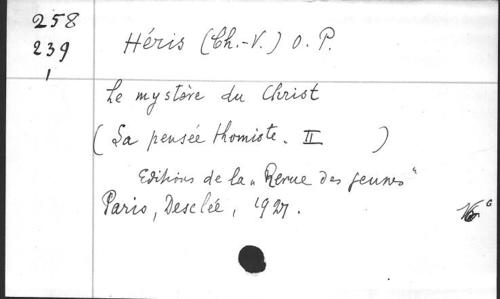 258
239
1
Héris (Ch.-V.) O. P.
Le mystère du Christ
(La pensée thomiste. II )
Editions de la „Revue des jeunes"
Paris, Desclée, 1927.